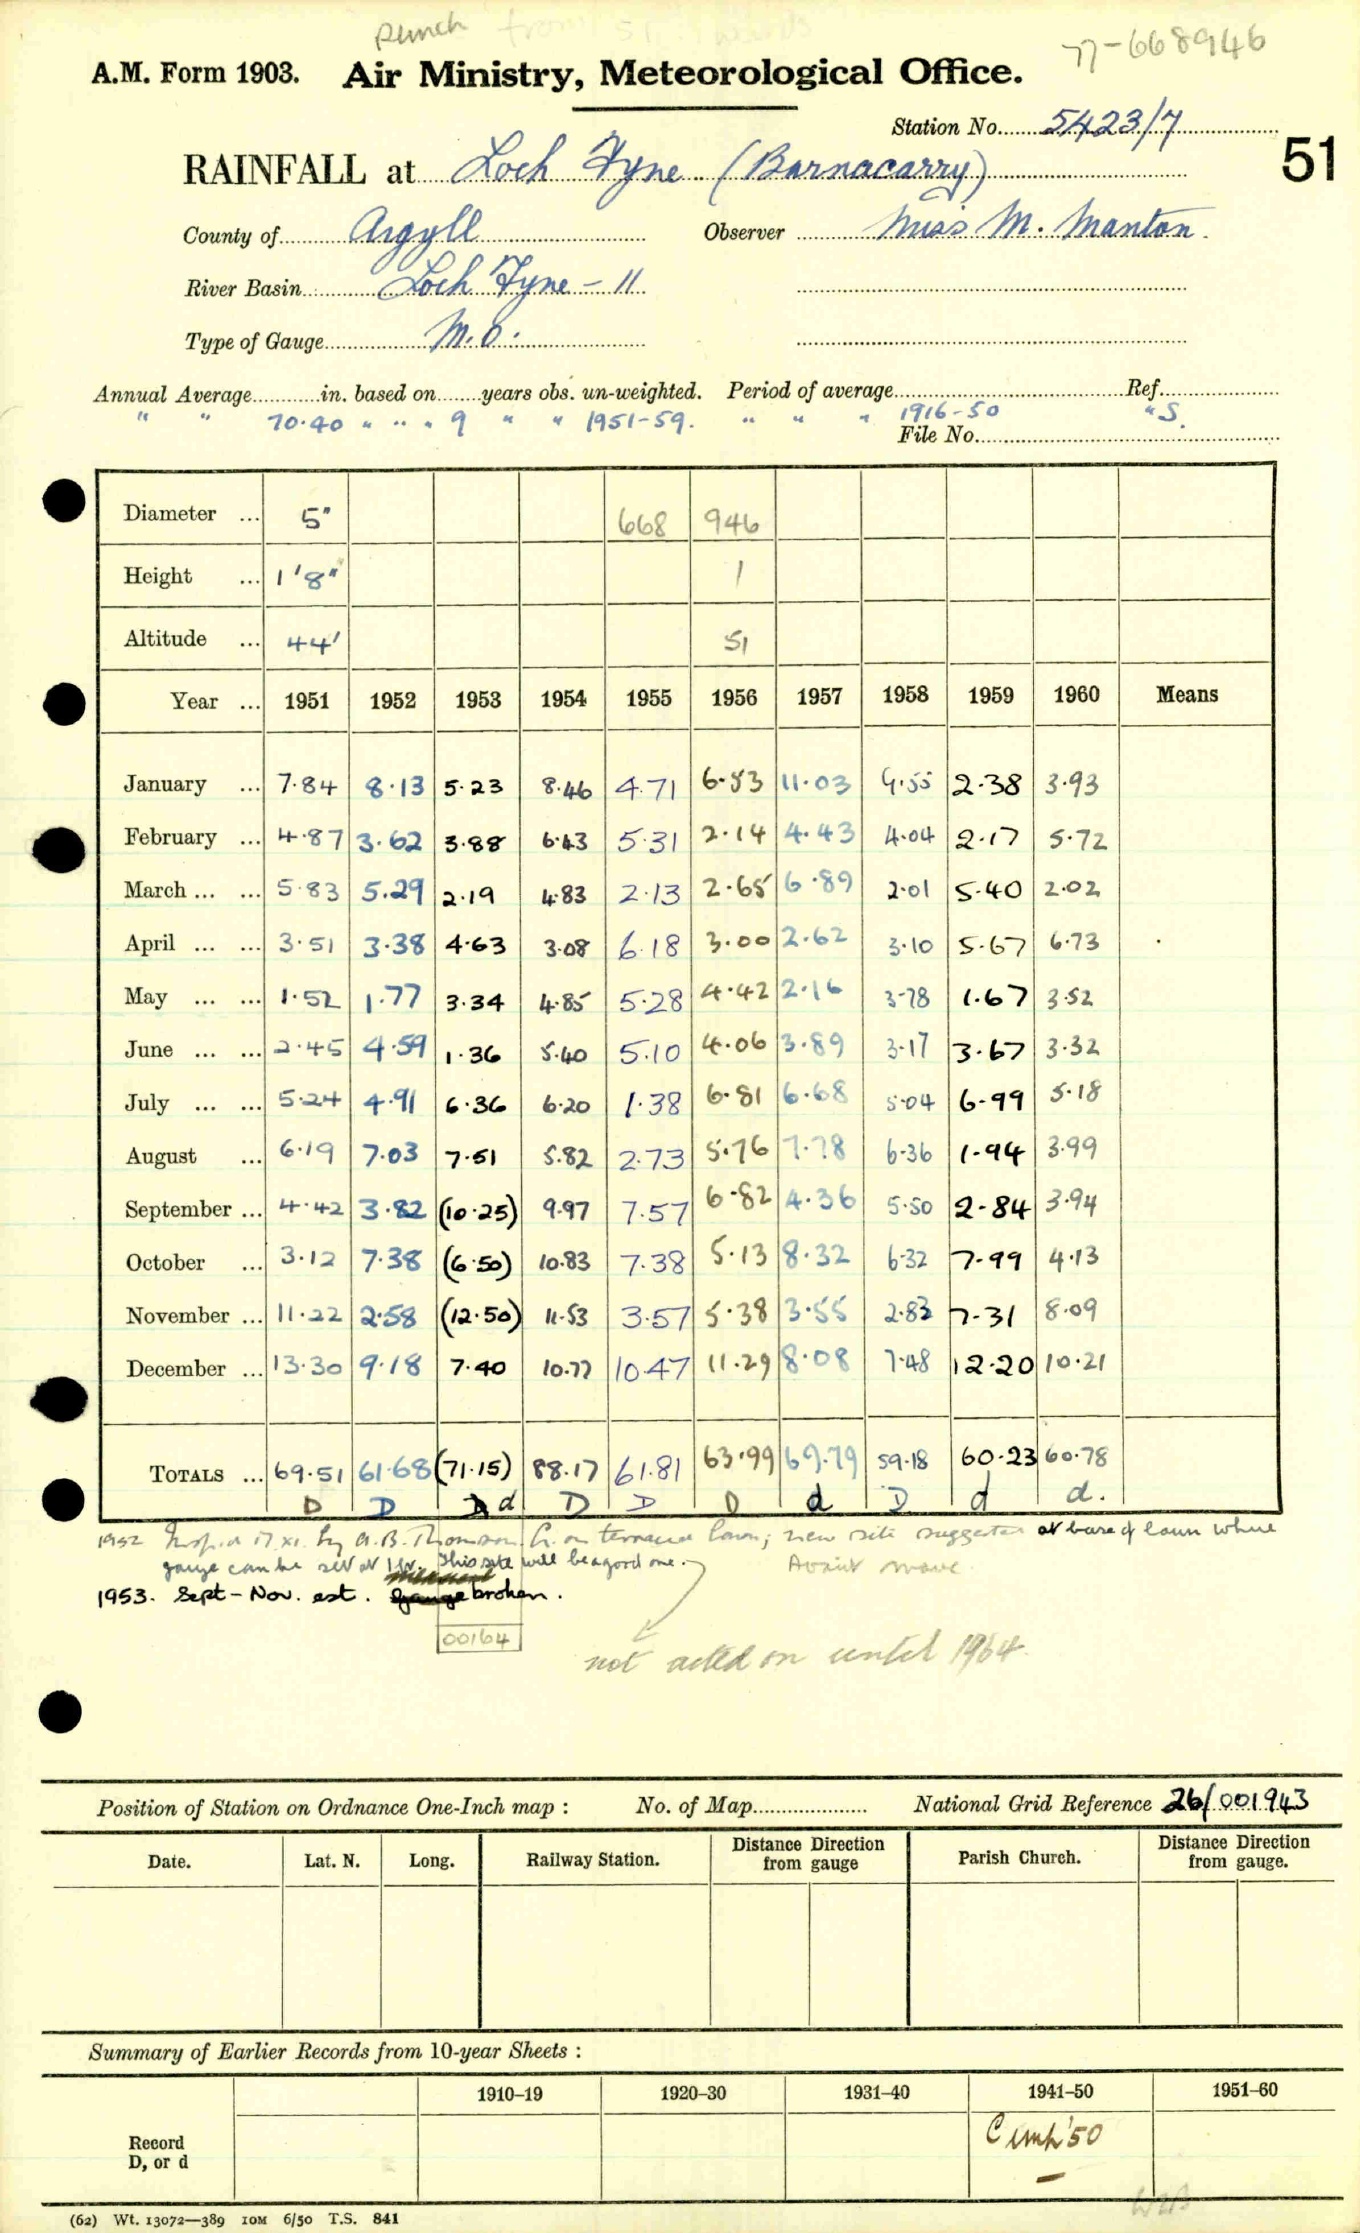 Punch from 51 wards
77-668946
A.M. Form 1903. Air Ministry, Meteorological Office.
Station No. 5423/7
51
RAINFALL at Loch Fyne (Barnacarry)
County of Argyll Observer Miss M. Manton.
River Basin Loch Fyne - 11
Type of Gauge M.O.
Annual Average in. based on years obs. un-weighted. Period of average Ref.
" " 70.40 " " " 9 " " 1951-59. " " " 1916-50 " S.
File No.
Diameter ... 5" 668 946
Height ... 1'8" 1
Altitude ... 44' 51
Year ... 1951 1952 1953 1954 1955 1956 1957 1958 1959 1960 Means
January ... 7.84 8.13 5.23 8.46 4.71 6.53 11.03 4.55 2.38 3.93
February ... 4.87 3.62 3.88 6.43 5.31 2.14 4.43 4.04 2.17 5.72
March ... ... 5.83 5.29 2.19 4.83 2.13 2.65 6.89 2.01 5.40 2.02
April ... ... 3.51 3.38 4.63 3.08 6.18 3.00 2.62 3.10 5.67 6.73
May ... ... 1.52 1.77 3.34 4.85 5.28 4.42 2.16 3.78 1.67 3.52
June ... ... 2.45 4.59 1.36 5.40 5.10 4.06 3.89 3.17 3.67 3.32
July ... ... 5.24 4.91 6.36 6.20 1.38 6.81 6.68 5.04 6.99 5.18
August ... 6.19 7.03 7.51 5.82 2.73 5.76 7.78 6.36 1.94 3.99
September ... 4.42 3.82 (10.25) 9.97 7.57 6.82 4.36 5.50 2.84 3.94
October ... 3.12 7.38 (6.50) 10.83 7.38 5.13 8.32 6.32 7.99 4.13
November ... 11.22 2.58 (12.50) 11.53 3.57 5.38 3.55 2.83 7.31 8.09
December ... 13.30 9.18 7.40 10.77 10.47 11.29 8.08 7.48 12.20 10.21
TOTALS ... 69.51 61.68 (71.15) 88.17 61.81 63.99 69.79 59.18 60.23 60.78
D D D d D D D d D d d.
1952 Insp.d 17.xi. by A.B. Thomson. G. on terraced lawn; new site suggested at base of lawn where
gauge can be set at 1ft. This site will be a good one. Await move.
1953. Sept-Nov. est. Gauge broken.
00164
not acted on until 1964.
Position of Station on Ordnance One-Inch map : No. of Map National Grid Reference 26/001943
Date. Lat. N. Long. Railway Station. Distance Direction from gauge Parish Church. Distance Direction from gauge.
Summary of Earlier Records from 10-year Sheets :
1910-19 1920-30 1931-40 1941-50 1951-60
Record
D, or d
'50
(62) Wt. 13072—389 10M 6/50 T.S. 841